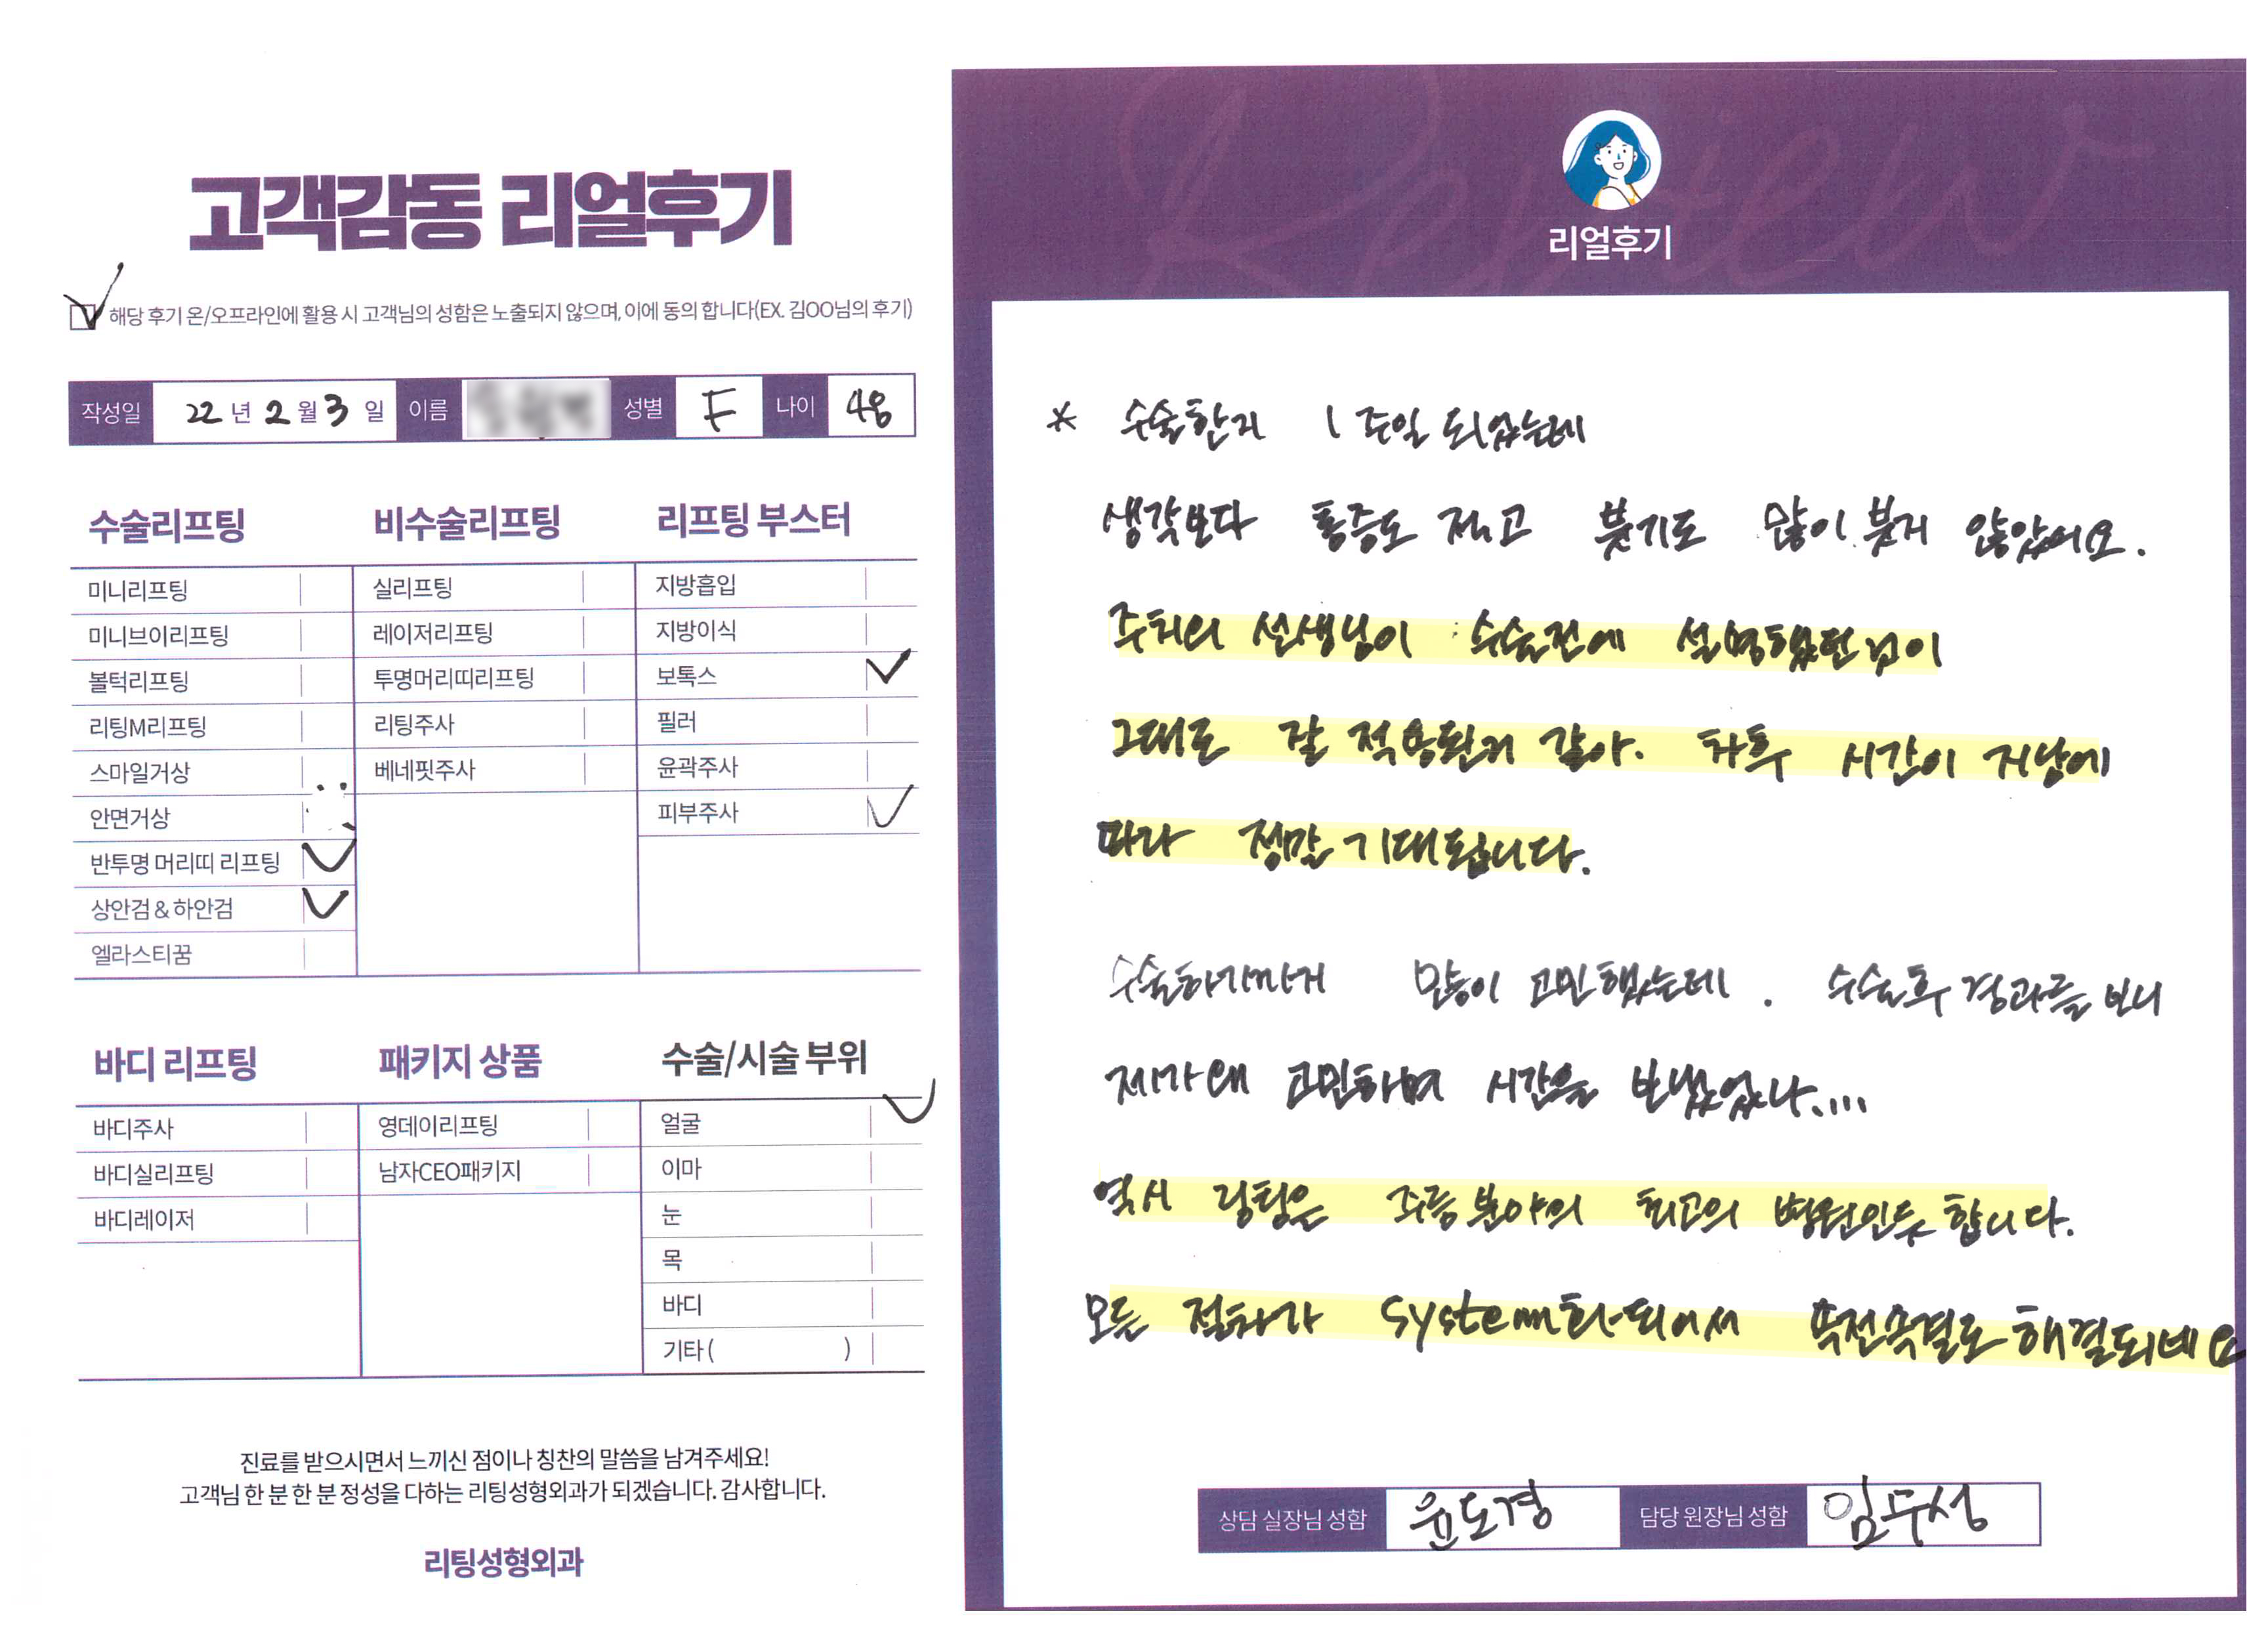 고객감동 리얼후기
해당 후기 온/오프라인에 활용 시 고객님의 성함은 노출되지 않으며, 이에 동의 합니다(EX. 김OO님의 후기)
작성일 22 년 2 월 3 일 이름 성별 F 나이 48
수술리프팅
미니리프팅
미니브이리프팅
볼턱리프팅
리팅M리프팅
스마일거상
안면거상
반투명 머리띠 리프팅
상안검 & 하안검
엘라스티꿈
비수술리프팅
실리프팅
레이저리프팅
투명머리띠리프팅
리팅주사
베네핏주사
리프팅 부스터
지방흡입
지방이식
보톡스
필러
윤곽주사
피부주사
바디 리프팅
바디주사
바디실리프팅
바디레이저
패키지 상품
영데이리프팅
남자CEO패키지
수술/시술 부위
얼굴
이마
눈
목
바디
기타 ( )
진료를 받으시면서 느끼신 점이나 칭찬의 말씀을 남겨주세요!
고객님 한 분 한 분 정성을 다하는 리팅성형외과가 되겠습니다. 감사합니다.
리팅성형외과
Review
리얼후기
* 수술한지 1주일 되었는데
생각보다 통증도 적고 붓기도 많이 붓지 않았어요.
주치의 선생님이 수술전에 설명했던
그대로 잘 적용된거 같아. 차후 시간이 지남에
따라 정말 기대됩니다.
수술하기까지 많이 고민했는데. 수술후 결과를 보니
제가 왜 고민하며 시간을 보냈었나....
역시 리팅은 주름분야의 최고의 병원인듯 합니다.
모든 절차가 system화 되어서 속전속결로 해결되네요
상담 실장님 성함 윤도경 담당 원장님 성함